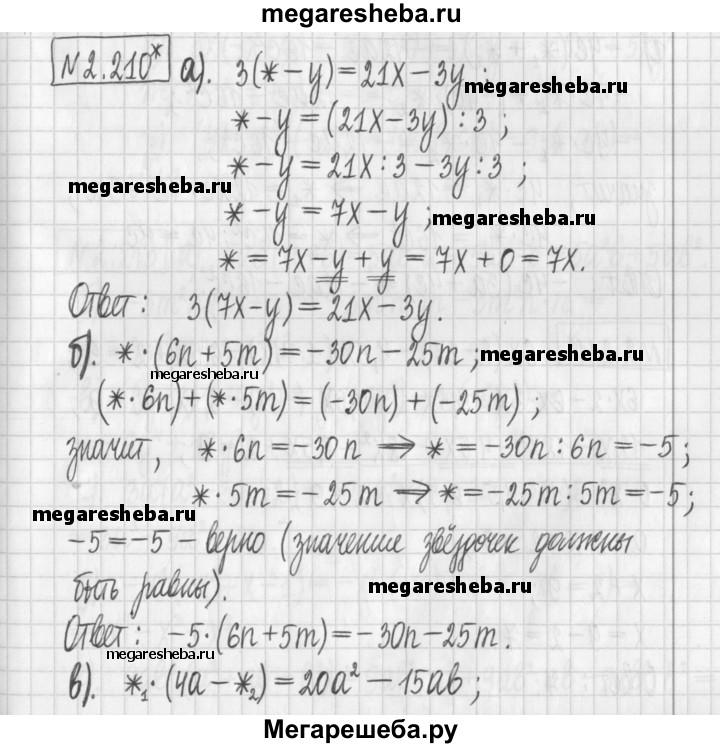 megaresheba.ru
N2.210* а). 3(*−y)=21x−3y ;
megaresheba.ru
*−y=(21x−3y):3 ;
*−y=21x:3−3y:3 ;
megaresheba.ru
*−y=7x−y ;
megaresheba.ru
*=7x−y+y=7x+0=7x.
Ответ: 3(7x−y)=21x−3y.
б). *·(6n+5m)=−30n−25m ;
megaresheba.ru
megaresheba.ru
(*·6n)+(*·5m)=(−30n)+(−25m) ;
значит, *·6n=−30n ⟹ *=−30n:6n=−5 ;
*·5m=−25m ⟹ *=−25m:5m=−5 ;
megaresheba.ru
−5=−5 − верно (значение звёздочек должны
быть равны).
megaresheba.ru
Ответ: −5·(6n+5m)=−30n−25m.
megaresheba.ru
в). *₁·(4a−*₂)=20a²−15ab ;
Мегарешеба.ру